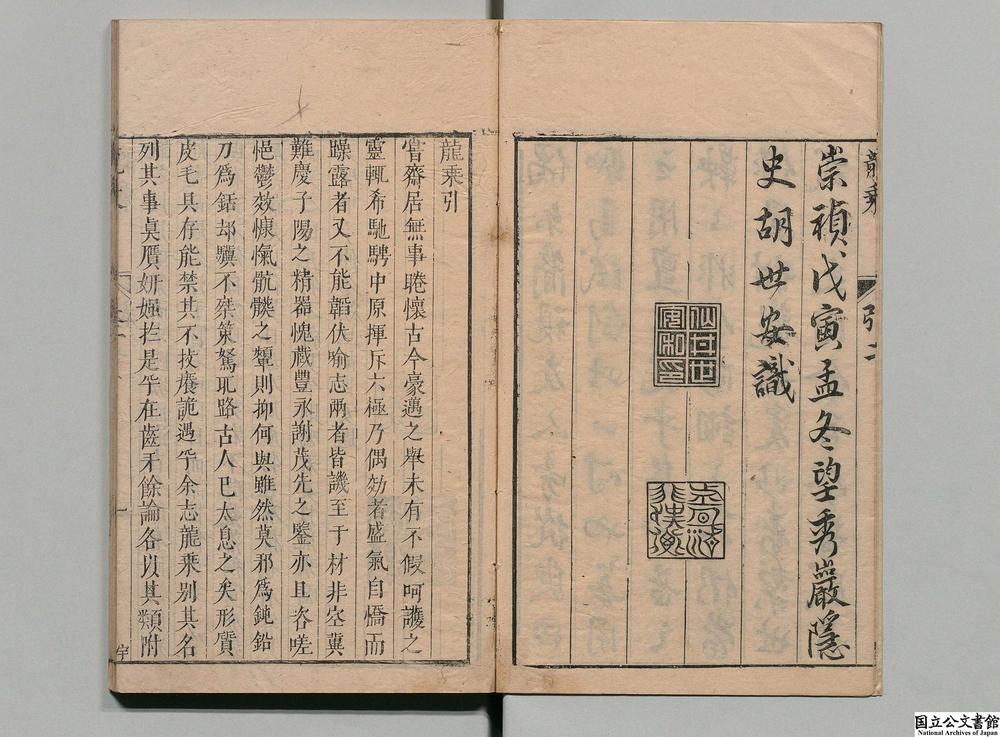 龍乘
引二
崇禎戊寅孟冬望秀巖隱
史胡世安識
龍乘引
嘗齋居無事睠懷古今豪邁之舉未有不假呵護之
靈輒希馳騁中原揮斥六極乃偶効者盛氣自憍而
躁露者又不能韜伏喻志兩者皆譏至于材非空冀
難慶子陽之精器愧藏豐永謝茂先之鑒亦且咨嗟
悒鬱效慷愾骯髒之顰則抑何與雖然莫邪為鈍鉛
刀為銛却驥不桀策駑耴路古人巳太息之矣形質
皮毛具存能禁其不技癢詭遇乎余志龍乘别其名
列其事眞贋妍媸拦是乎在齒牙餘論各以其類附
国立公文書館
National Archives of Japan